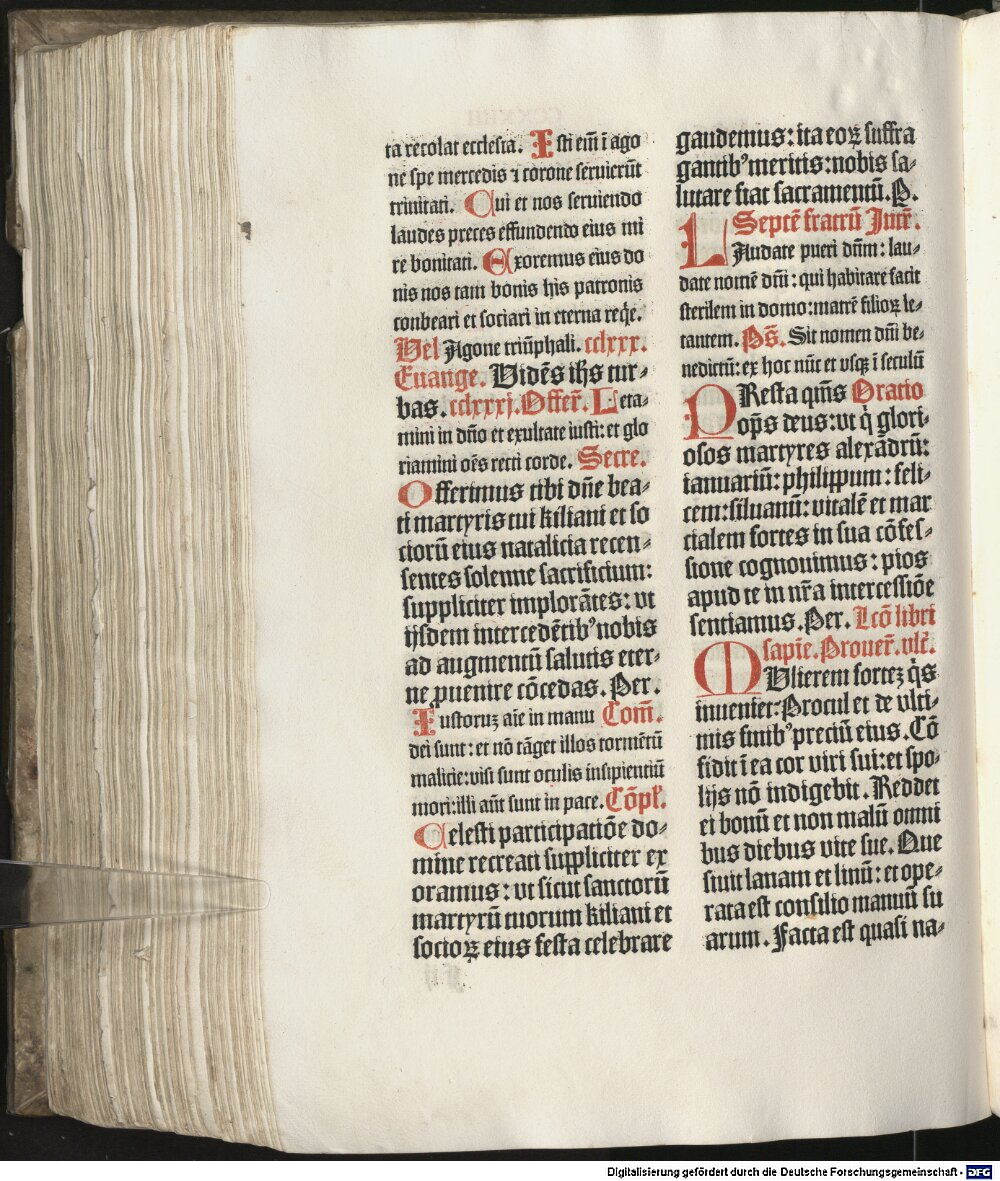 ta recolat ecclesia. Isti em̄ ī ago
ne spe mercedis ⁊ corone seruierūt
trinitati. Qui et nos seruiendo
laudes preces effundendo eius mi
re bonitati. Exoremus eius do
nis nos tam bonis his patronis
conbeari et sociari in eterna reqͥe.
Vel Agone triūphali. cclxxx.
Euange. Vidēs ihs tur⸗
bas. cclxxxj. Offer̄. Leta⸗
mini in dn̄o et exultate iusti: et glo
riamini oēs recti corde. Secre.
Offerimus tibi dn̄e bea⸗
ti martyris tui kiliani et so
ciorū eius natalicia recen⸗
sentes solenne sacrificium:
suppliciter implorātes: vt
ijsdem intercedētibꝰ nobis
ad augmentū salutis eter⸗
ne ꝑuenire cōcedas. Per.
Iustoruz aīe in manu Com̄.
dei sunt: et nō tāget illos tormētū
malicie: visi sunt oculis insipientiū
mori: illi aūt sunt in pace. Cōpl̄.
Celesti participatiōe do⸗
mine recreati suppliciter ex
oramus: vt sicut sanctorū
martyrū tuorum kiliani et
socioꝝ eius festa celebrare
gaudemus: ita eoꝝ suffra
gantibꝰ meritis: nobis sa⸗
lutare fiat sacramentū. P.
Septē fratrū Intr̄.
LAudate pueri dn̄m: lau⸗
date nomē dn̄i: qui habitare facit
sterilem in domo: matrē filioꝝ le⸗
tantem. Ps̄. Sit nomen dn̄i be⸗
nedictū: ex hoc nūc et vsqꝫ ī seculū
PResta qm̄s Oratio
op̄s deus: vt qͥ glori⸗
osos martyres alexādrū:
ianuariū: philippum: feli⸗
cem: siluanū: vitalē et mar
cialem fortes in sua cōfes⸗
sione cognouimus: pios
apud te in nr̄a intercessiōe
sentiamus. Per. Lcō libri
sapīe. Prouer̄. vlt̄.
MVlierem fortez qͥs
inueniet: Procul et de vlti⸗
mis finibꝰ preciū eius. Cō
fidit ī ea cor viri sui: et spo⸗
lijs nō indigebit. Reddet
ei bonū et non malū omni
bus diebus vite sue. Que
siuit lanam et linū: et ope⸗
rata est consilio manuū su
arum. Facta est quasi na⸗
Digitalisierung gefördert durch die Deutsche Forschungsgemeinschaft - DFG